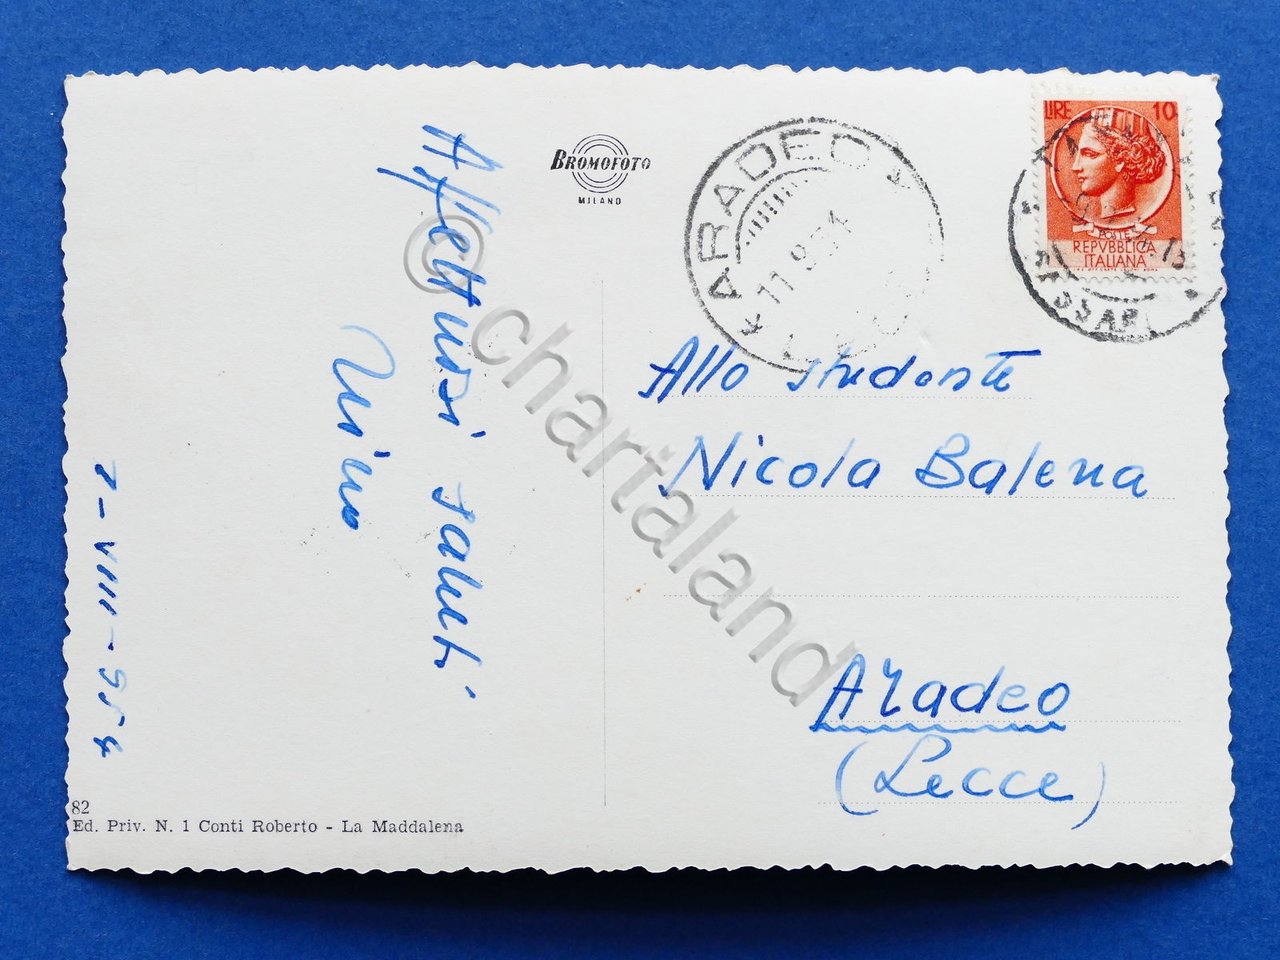 Affettuosi saluti
Nino
7-VIII-954
BROMOFOTO
MILANO
ARADEO
LIRE 10
POSTE
REPVBBLICA
ITALIANA
SASSARI
Allo studente
Nicola Balena
Aradeo
(Lecce)
82
Ed. Priv. N. 1 Conti Roberto - La Maddalena
© chartaland